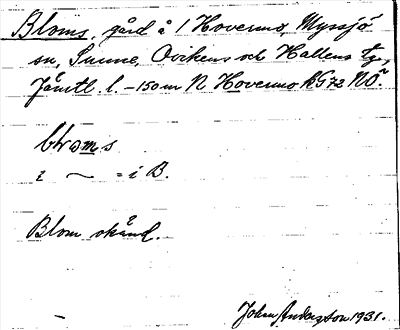 Bloms, gård å 1 Hovermo, Myssjö
sn, Sunne, Ovikens och Hallens tg,
Jämtl. l. -150m N Hovermo kG72 NÖ.
blωm.s
i ~ = i B.
Blom okänd.
John Andersson 1931.